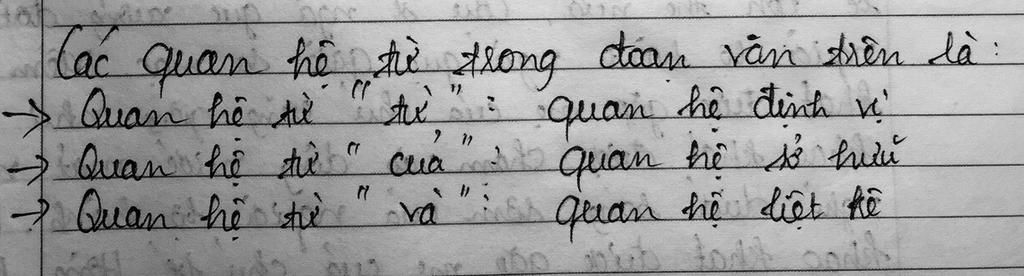 Các quan hệ từ trong đoạn văn trên là:
→ Quan hệ từ "từ": quan hệ định vị
→ Quan hệ từ "của": quan hệ sở hữu
→ Quan hệ từ "và": quan hệ liệt kê